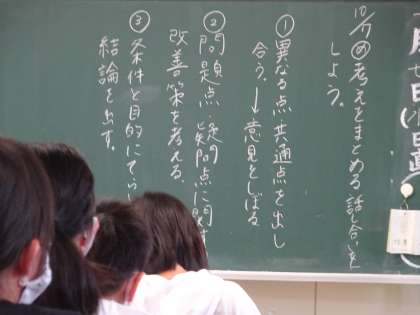 10/17 めの考えをまとめる話し合いを
しよう。
① 異なる点・共通点を出し
合う。→意見をしぼる
② 問題点・疑問点に
改善策を考える。
③ 条件と目的にてらし
結論を出す。